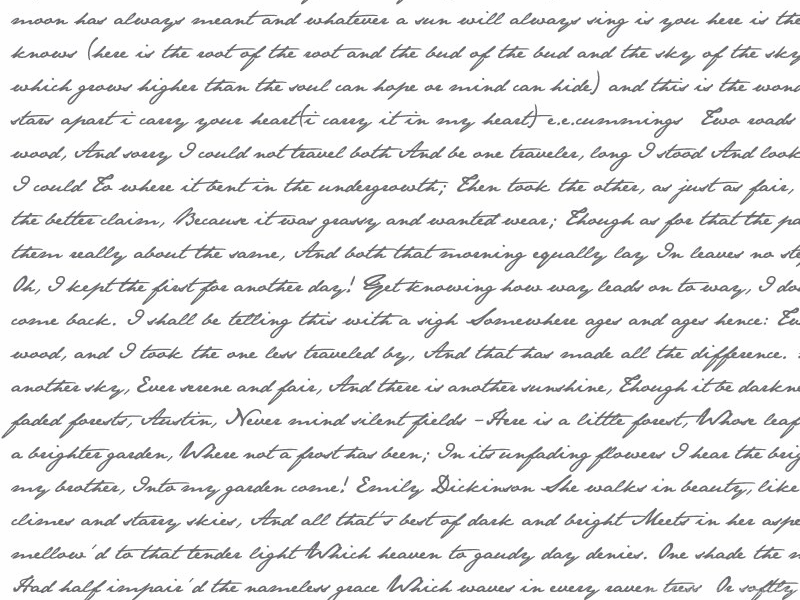 moon has always meant and whatever a sun will always sing is you here is the
knows (here is the root of the root and the bud of the bud and the sky of the sky
which grows higher than the soul can hope or mind can hide) and this is the won
stars apart i carry your heart(i carry it in my heart) e.e.cummings Two roads
wood, And sorry I could not travel both And be one traveler, long I stood And look
I could To where it bent in the undergrowth; Then took the other, as just as fair,
the better claim, Because it was grassy and wanted wear; Though as for that the pa
them really about the same, And both that morning equally lay In leaves no ste
Oh, I kept the first for another day! Yet knowing how way leads on to way, I do
come back. I shall be telling this with a sigh Somewhere ages and ages hence: Tw
wood, and I took the one less traveled by, And that has made all the difference.
another sky, Ever serene and fair, And there is another sunshine, Though it be darkne
faded forests, Austin, Never mind silent fields -Here is a little forest, Whose leaf
a brighter garden, Where not a frost has been; In its unfading flowers I hear the brig
my brother, Into my garden come! Emily Dickinson She walks in beauty, like
climes and starry skies, And all that's best of dark and bright Meets in her aspe
mellow'd to that tender light Which heaven to gaudy day denies. One shade the m
Had half impair'd the nameless grace Which waves in every raven tress Or softly